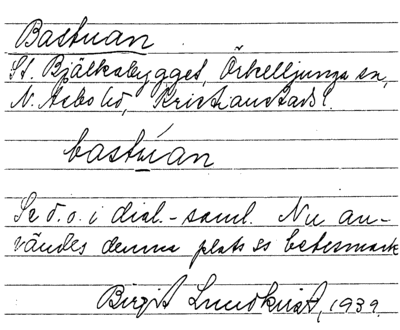 Bastuan
St. Bjälkabygget, Örkelljunga sn,
N. Åsbo hd, Kristianstads l.
bastúan
Se d.o. i dial.-saml. Nu an-
vändes denna plats ss betesmark
Birgit Lundkvist, 1939.